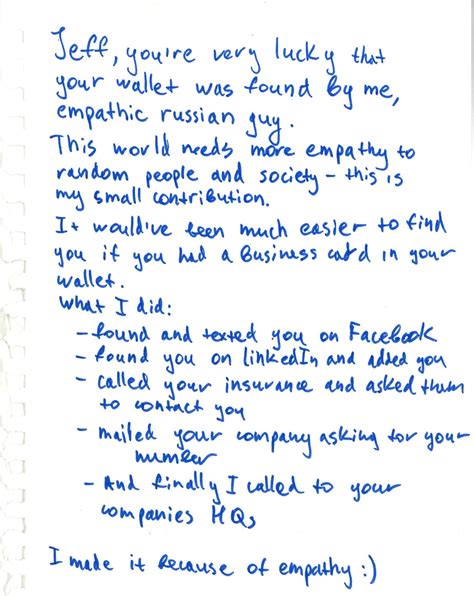 Jeff, you're very lucky that
your wallet was found by me,
empathic russian guy.
This world needs more empathy to
random people and society – this is
my small contribution.
It would've been much easier to find
you if you had a Business card in your
wallet.
What I did:
- found and texted you on Facebook
- found you on linkedIn and added you
- called your insurance and asked them
to contact you
- mailed your company asking for your
number
- And finally I called to your
companies HQs
I made it because of empathy :)